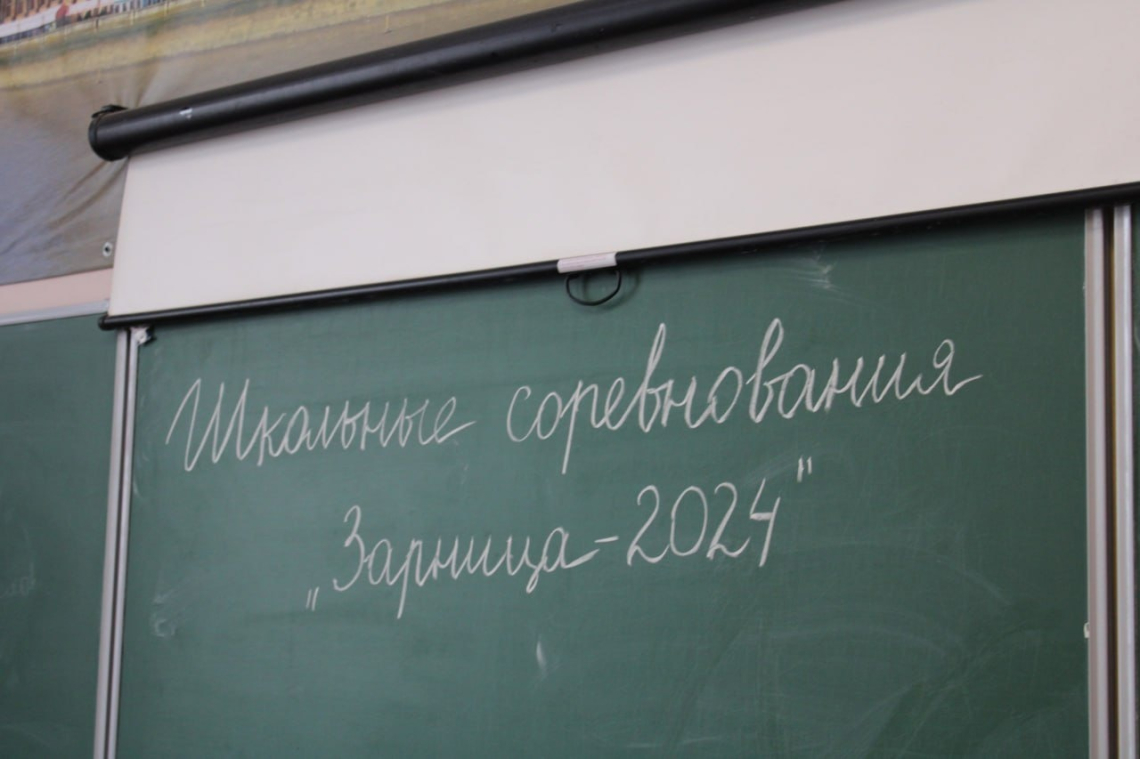 Школьные соревнования
„Зарница-2024"